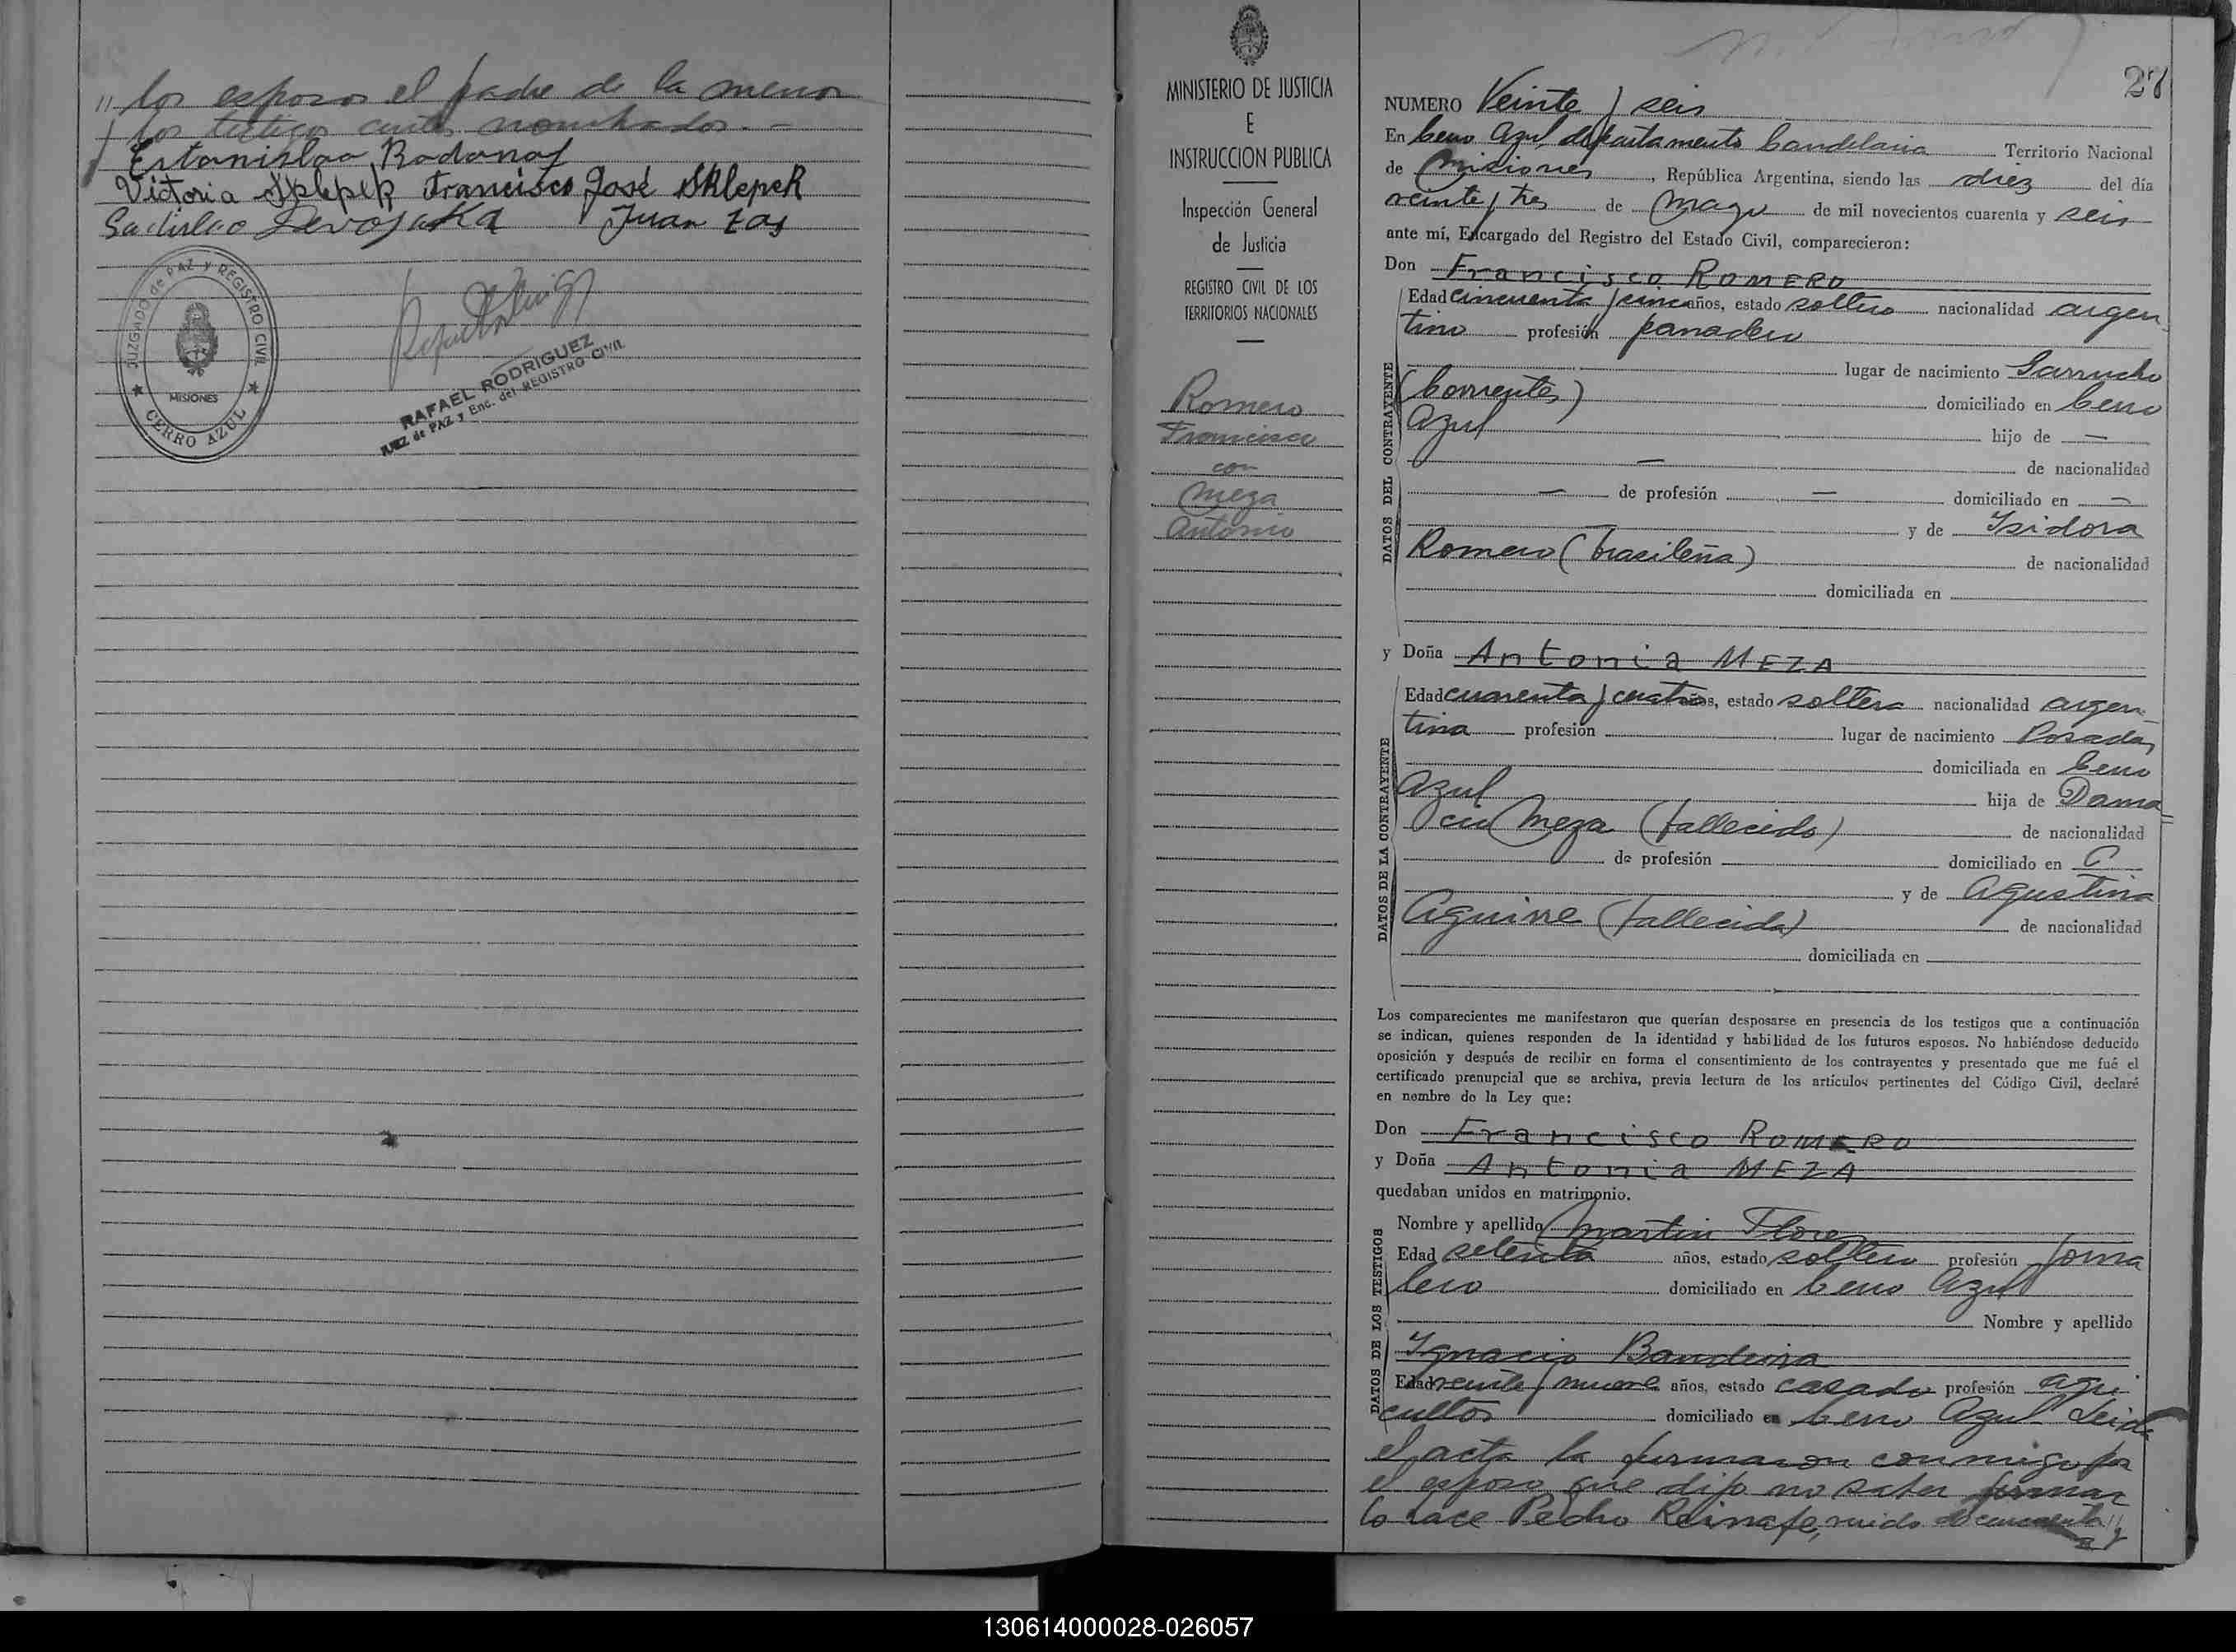 " los esposos el padre de la menor
y los testigos antes nombrados. -
Estanislao
Victoria Sklepek Francisco José Sklepek
Juan Zas
JUZGADO de PAZ y REGISTRO CIVIL
MISIONES
CERRO AZUL
RAFAEL RODRIGUEZ
JUEZ de PAZ y Enc. del REGISTRO CIVIL
MINISTERIO DE JUSTICIA
E
INSTRUCCION PUBLICA
Inspección General
de Justicia
REGISTRO CIVIL DE LOS
TERRITORIOS NACIONALES
Romero
Francisco
con
Meza
Antonio
27
NUMERO Veinte y seis
En Cerro Azul, departamento Candelaria Territorio Nacional
de Misiones, República Argentina, siendo las diez del día
veinte y tres de Mayo de mil novecientos cuarenta y seis
ante mí, Encargado del Registro del Estado Civil, comparecieron:
Don Francisco ROMERO
DATOS DEL CONTRAYENTE
Edad cincuenta y cinco años, estado soltero nacionalidad argen
tino profesión panadero
lugar de nacimiento Garruchos
(Corrientes) domiciliado en Cerro
Azul hijo de —
— de nacionalidad
— de profesión — domiciliado en —
y de Isidora
Romero (brasileña) de nacionalidad
domiciliada en
y Doña Antonia MEZA
DATOS DE LA CONTRAYENTE
Edad cuarenta y cuatro años, estado soltera nacionalidad argen
tina profesión lugar de nacimiento Posadas
domiciliada en Cerro
Azul hija de Dama
cio Meza (fallecido) de nacionalidad
de profesión domiciliado en
y de Agustina
Aguirre (fallecida) de nacionalidad
domiciliada en
Los comparecientes me manifestaron que querían desposarse en presencia de los testigos que a continuación
se indican, quienes responden de la identidad y habilidad de los futuros esposos. No habiéndose deducido
oposición y después de recibir en forma el consentimiento de los contrayentes y presentado que me fué el
certificado prenupcial que se archiva, previa lectura de los artículos pertinentes del Código Civil, declaré
en nombre de la Ley que:
Don Francisco ROMERO
y Doña Antonia MEZA
quedaban unidos en matrimonio.
DATOS DE LOS TESTIGOS
Nombre y apellido Martin Flores
Edad setenta años, estado soltero profesión jorna
lero domiciliado en Cerro Azul
Nombre y apellido
Ignacio Bandeira
Edad veinte y nueve años, estado casado profesión agri
cultor domiciliado en Cerro Azul Leida
el acta la firmaron conmigo por
el esposo que dijo no saber firmar
lo hace Pedro Reinafe, de cincuenta y
130614000028-026057